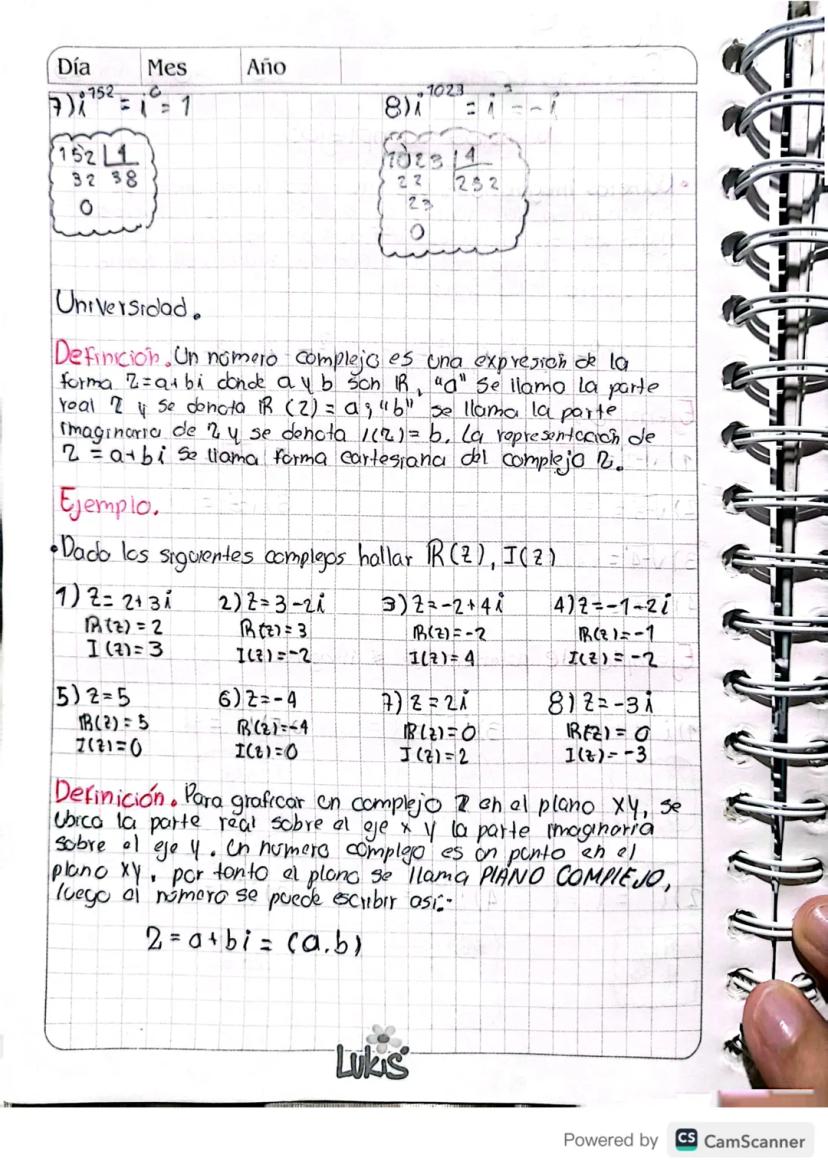 Día Mes Año
7) i^152 = i^0 = 1 8) i^1023 = i^3 = -i
152 4 1023 4
32 38 22 232
0 23
0
Universidad.
Definición. Un número complejo es una expresión de la
forma z=a+bi donde a y b son ℝ, "a" se llamo la parte
real z y se denota ℝ (z) = a; "b" se llama la parte
imaginaria de z y se denota I(z) = b. La representación de
z = a+bi se llama forma cartesiana del complejo z.
Ejemplo.
• Dado los siguientes complejos hallar ℝ(z), I(z)
1) z= 2+3i 2) z=3-2i 3) z=-2+4i 4) z=-1-2i
ℝ(z)=2 ℝ(z)=3 ℝ(z)=-2 ℝ(z)=-1
I(z)=3 I(z)=-2 I(z)=4 I(z)=-2
5) z=5 6) z=-4 7) z=2i 8) z=-3i
ℝ(z)=5 ℝ(z)=-4 ℝ(z)=0 ℝ(z)=0
I(z)=0 I(z)=0 I(z)=2 I(z)=-3
Definición. Para graficar un complejo z en el plano xy, se
ubica la parte real sobre el eje x y la parte imaginaria
sobre el eje y. Un numero complejo es un punto en el
plano xy, por tanto el plano se llama PLANO COMPLEJO,
luego el número se puede escribir así:-
z = a+bi = (a.b)
Lukis
Powered by CS CamScanner